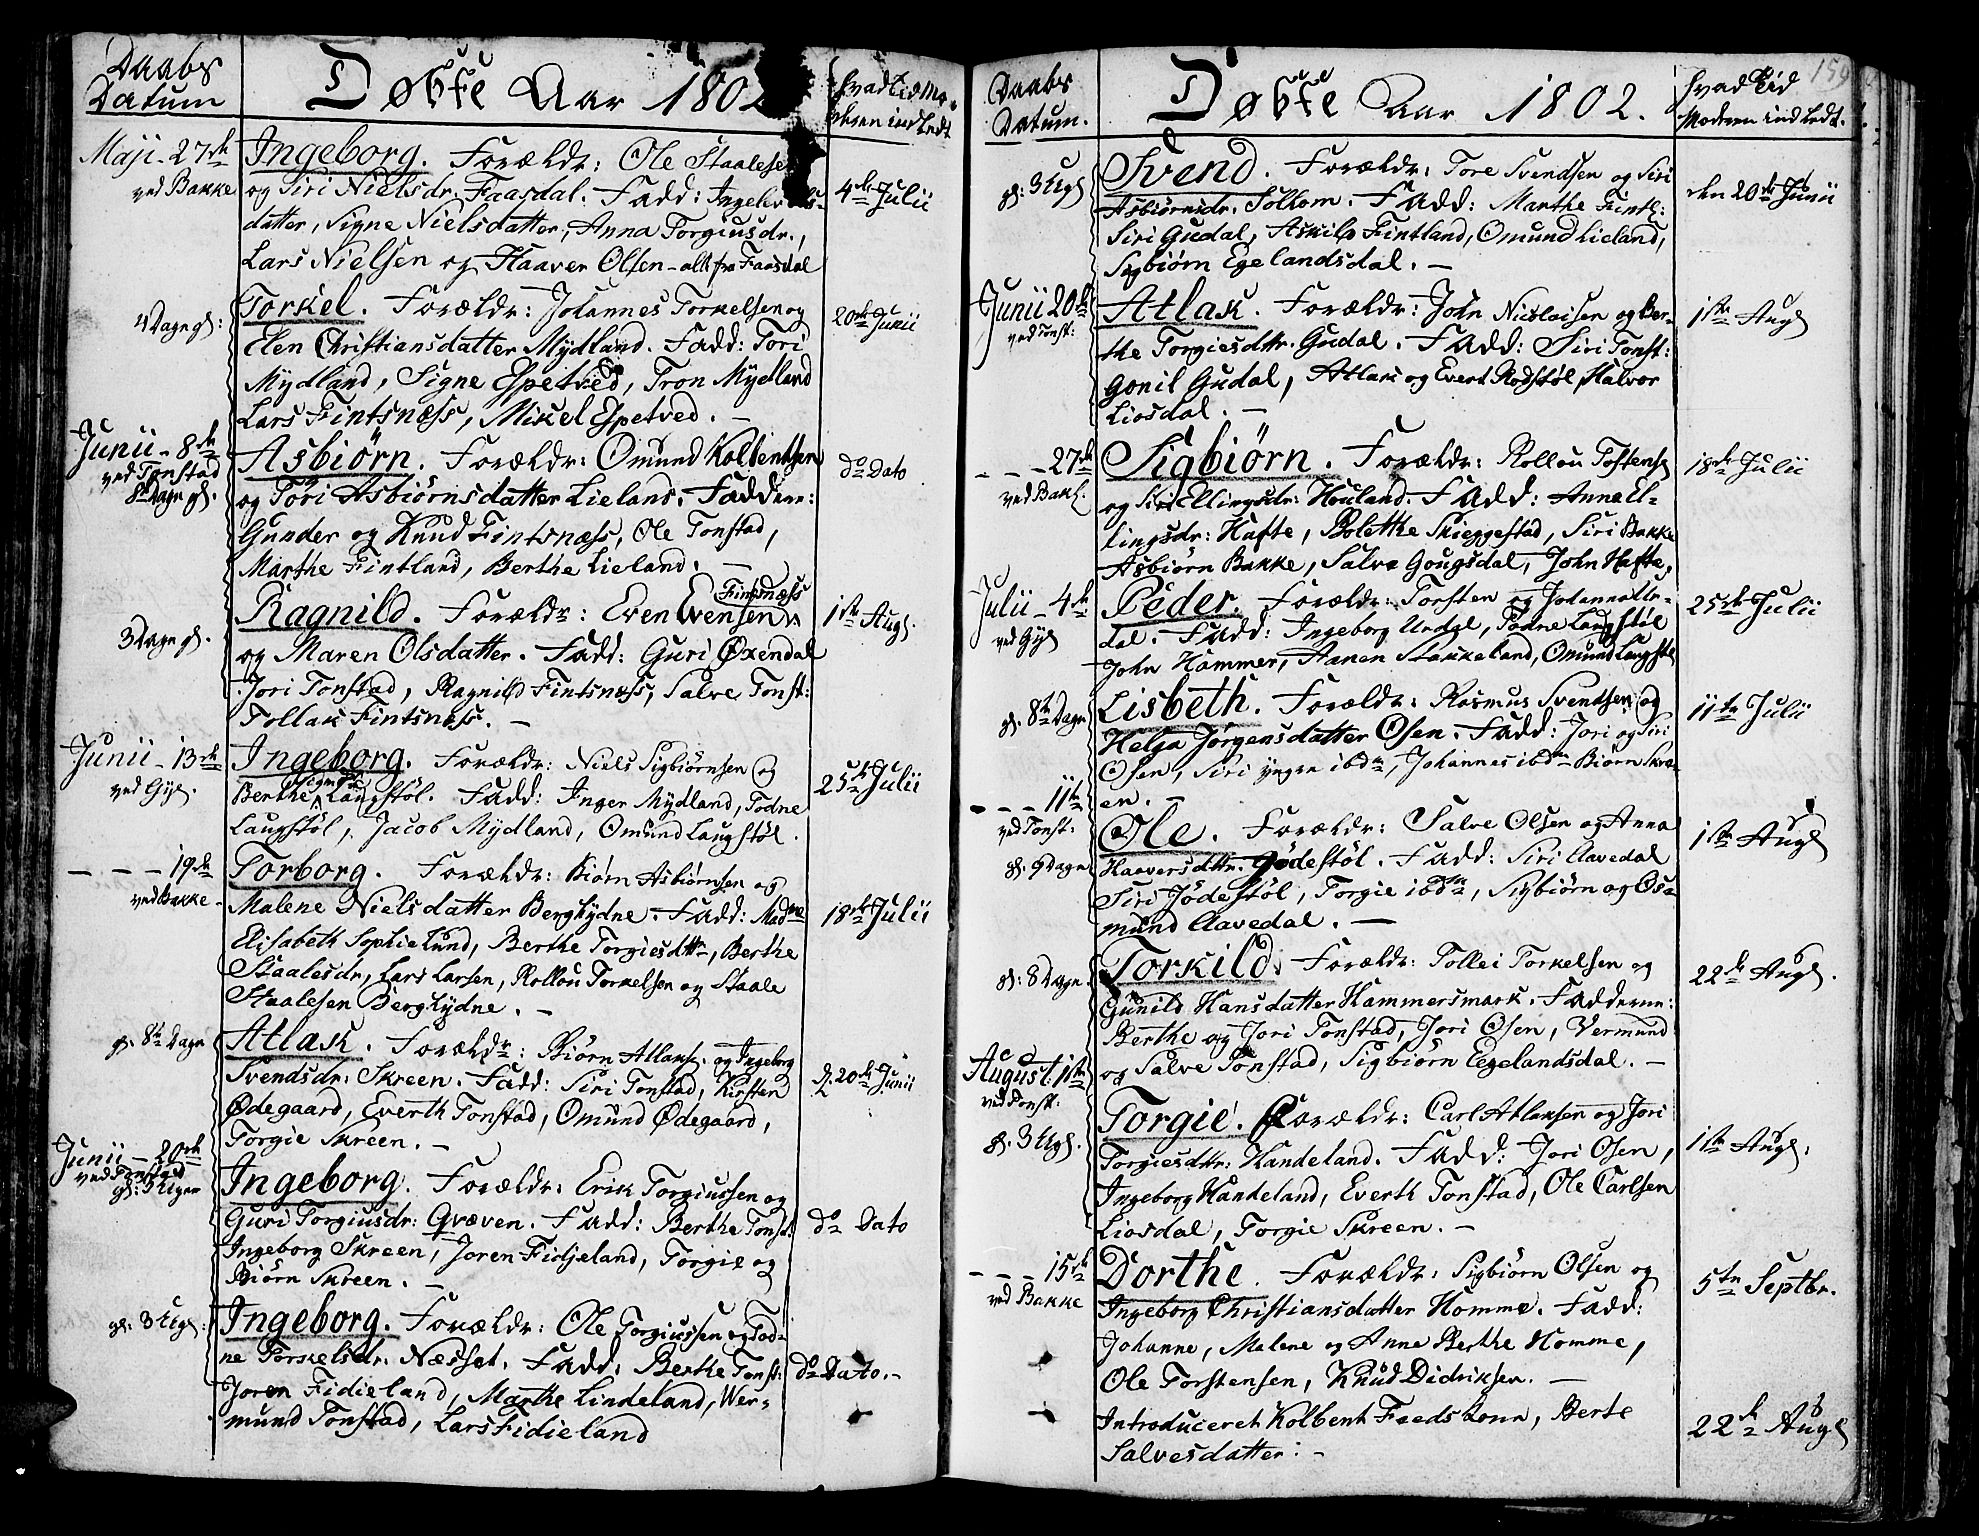 Daabs
Datum
Døbte Aar 1802
hvad tid Mo-
deren indledt
Maji 27de
ved Bakke
Ingeborg. Forældr: Ole Staalesen
og Siri Nielsdr. Faasdal. Fadd: Ingeb: Ols-
datter, Signe Nielsdatter, Anna Torgiusdr.,
Lars Nielsen og Haaver Olsen - alle fra Faasdal
4de Julii
4 Dage gl:
Torkel. Forældr: Johannes Torkelsen og
Elen Christiansdatter Mydland. Fadd: Tori
Mydland, Signe Espetved, Tron Mydland
Lars Fintsnæss, Mikel Espetved. -
20de Junii
Junii - 8de
ved Tonstad
8te Dage gl.
Asbiørn. Forældr: Omund Kolbentsen
og Tori Asbiørnsdatter Lieland. Faddere:
Gunder og Knud Fintsnæss, Ole Tonstad,
Marthe Fintland, Berthe Lieland. -
do Dato
3 Dage gl.
Ragnild. Forældr: Even Evensen Fintsnæss
og Maren Olsdatter. Fadd: Guri Øxendal
Jori Tonstad, Ragnild Fintsnæss, Salve Tonst:
Tollak Fintsnæss. -
1ste Aug.
Junii - 13de
ved Gyl.
Ingeborg. Forældr: Niels Sigbiørnsen og
Berthe Sigmdr Laugstøl. Fadd: Inger Mydland, Todne
Laugstøl, Jacob Mydland, Omund Laugstøl.
25de Julii
- - - 19de
ved Bakke -
Torborg. Forældr: Biørn Asbiørnsen og
Malene Nielsdatter Berghydne. Fadd: Madme
Elisabeth Sophie Lund, Berthe Torgiesdttr, Berthe
Staalesdr, Lars Larsen, Rollou Torkelsen og Staale
Staalesen Berghydne. -
18de Julii
gl. 8te Dage
Atlak. Forældr: Biørn Atlaks. og Ingeborg
Svendsdr: Skreen. Fadd: Siri Tonstad, Kirsten
Ødegaard, Everth Tonstad, Omund Ødegaard,
Torgie Skreen. -
d. 20de Junii
Junii - 20de
ved Tonstad
gl: 3 Uger
Ingeborg. Forældr: Erik Torgiussen og
Guri Torgiusdr: Qvæven. Fadd: Berthe Tonst:
Ingeborg Skreen, Joren Fidjeland, Torgie og
Biørn Skreen. -
do Dato
gl. 3 Uge:
Ingeborg. Forældr: Ole Torgiussen og Tod-
ne Torkelsdr. Næsset. Fadd: Berthe Tonst:
Joren Fidieland, Marthe Lindeland, Wer-
mund Tonstad, Lars Fidieland
do Dato. -
159
Daabs
Datum.
Døbte Aar 1802.
hvad Tid
Moderen indledt.
gl: 3 Uge
Svend. Forældr: Tore Svendsen og Siri
Asbiørnsdr. Solkom. Fadd: Marthe Fintl:
Siri Gudal, Askild Fintland, Omund Lieland,
Sigbiørn Egelandsdal. -
den 20de Junii
Junii 20de
ved Tonst:
Atlak. Forældr: John Nicolaisen og Ber-
the Torgiesdttr. Gudal. Fadd: Siri Tonst:
Gonil Gudal, Atlak og Evert Rødstøl, Halvor
Liosdal. -
1ste Aug
- - - 27de
ved Bakk.
Sigbiørn. Forældr: Rollou Tostens
og Siri Ellingsdr: Houland. Fadd: Anna El-
lingsdr: Hafte, Bolethe Skieggestad, Siri Bakke
Asbiørn Bakke, Salve Gougsdal, John Hafte,
18de Julii
Julii - 4de
ved Gyl
Peder. Forældr: Torsten og Johanna Ur-
dal. Fadd: Ingeborg Urdal, Todne Laugstøl
John Hammer, Aanen Stakkeland, Omund Laugstøl
25de Julii
gl. 8te Dage
Lisbeth. Forældr: Rasmus Svendsen og
Helga Jørgensdatter Osen. Fadd: Jori og Siri
Osen, Siri yngre ibdm, Johannes ibdm Biørn Skre-
en. -
11te Julii
- - - 11te
ved Tonst:
gl. 9 Dage
Ole. Forældr: Salve Olsen og Anna
Haaversdttr. Jødestøl. Fadd: Siri Aavedal
Siri Jødestøl, Torgie ibdm, Sigbiørn og Os-
mund Aavedal. -
1ste Aug
gl: 8 Dage.
Torkild. Forældr: Tollei Torkelsen og
Gunild Hansdatter Hammersmark. Fadderne:
Berthe og Jori Tonstad, Jori Osen, Vermund
og Salve Tonstad, Sigbiørn Eegelandsdal. -
22de Aug.
August: 1ste
ved Tonst:
gl. 3 Uge.
Torgie. Forældr: Carl Atlaksen og Jori
Torgiesdttr: Handeland. Fadd: Jori Osen,
Ingeborg Handeland, Everth Tonstad, Ole Carlsen
Liosdal, Torgie Skreen. -
1ste Aug.
- - - 15de
ved Bakke
Dorthe. Forældr: Sigbiørn Olsen og
Ingeborg Christiansdatter Homme. Fadd:
Johanne, Malene og Anne Berthe Homme,
Ole Torstensen, Knud Didriksen. -
5te Septbr.
Introduceret Kolbent Fredskonn, Berte
Salvesdatter: -
22de Aug